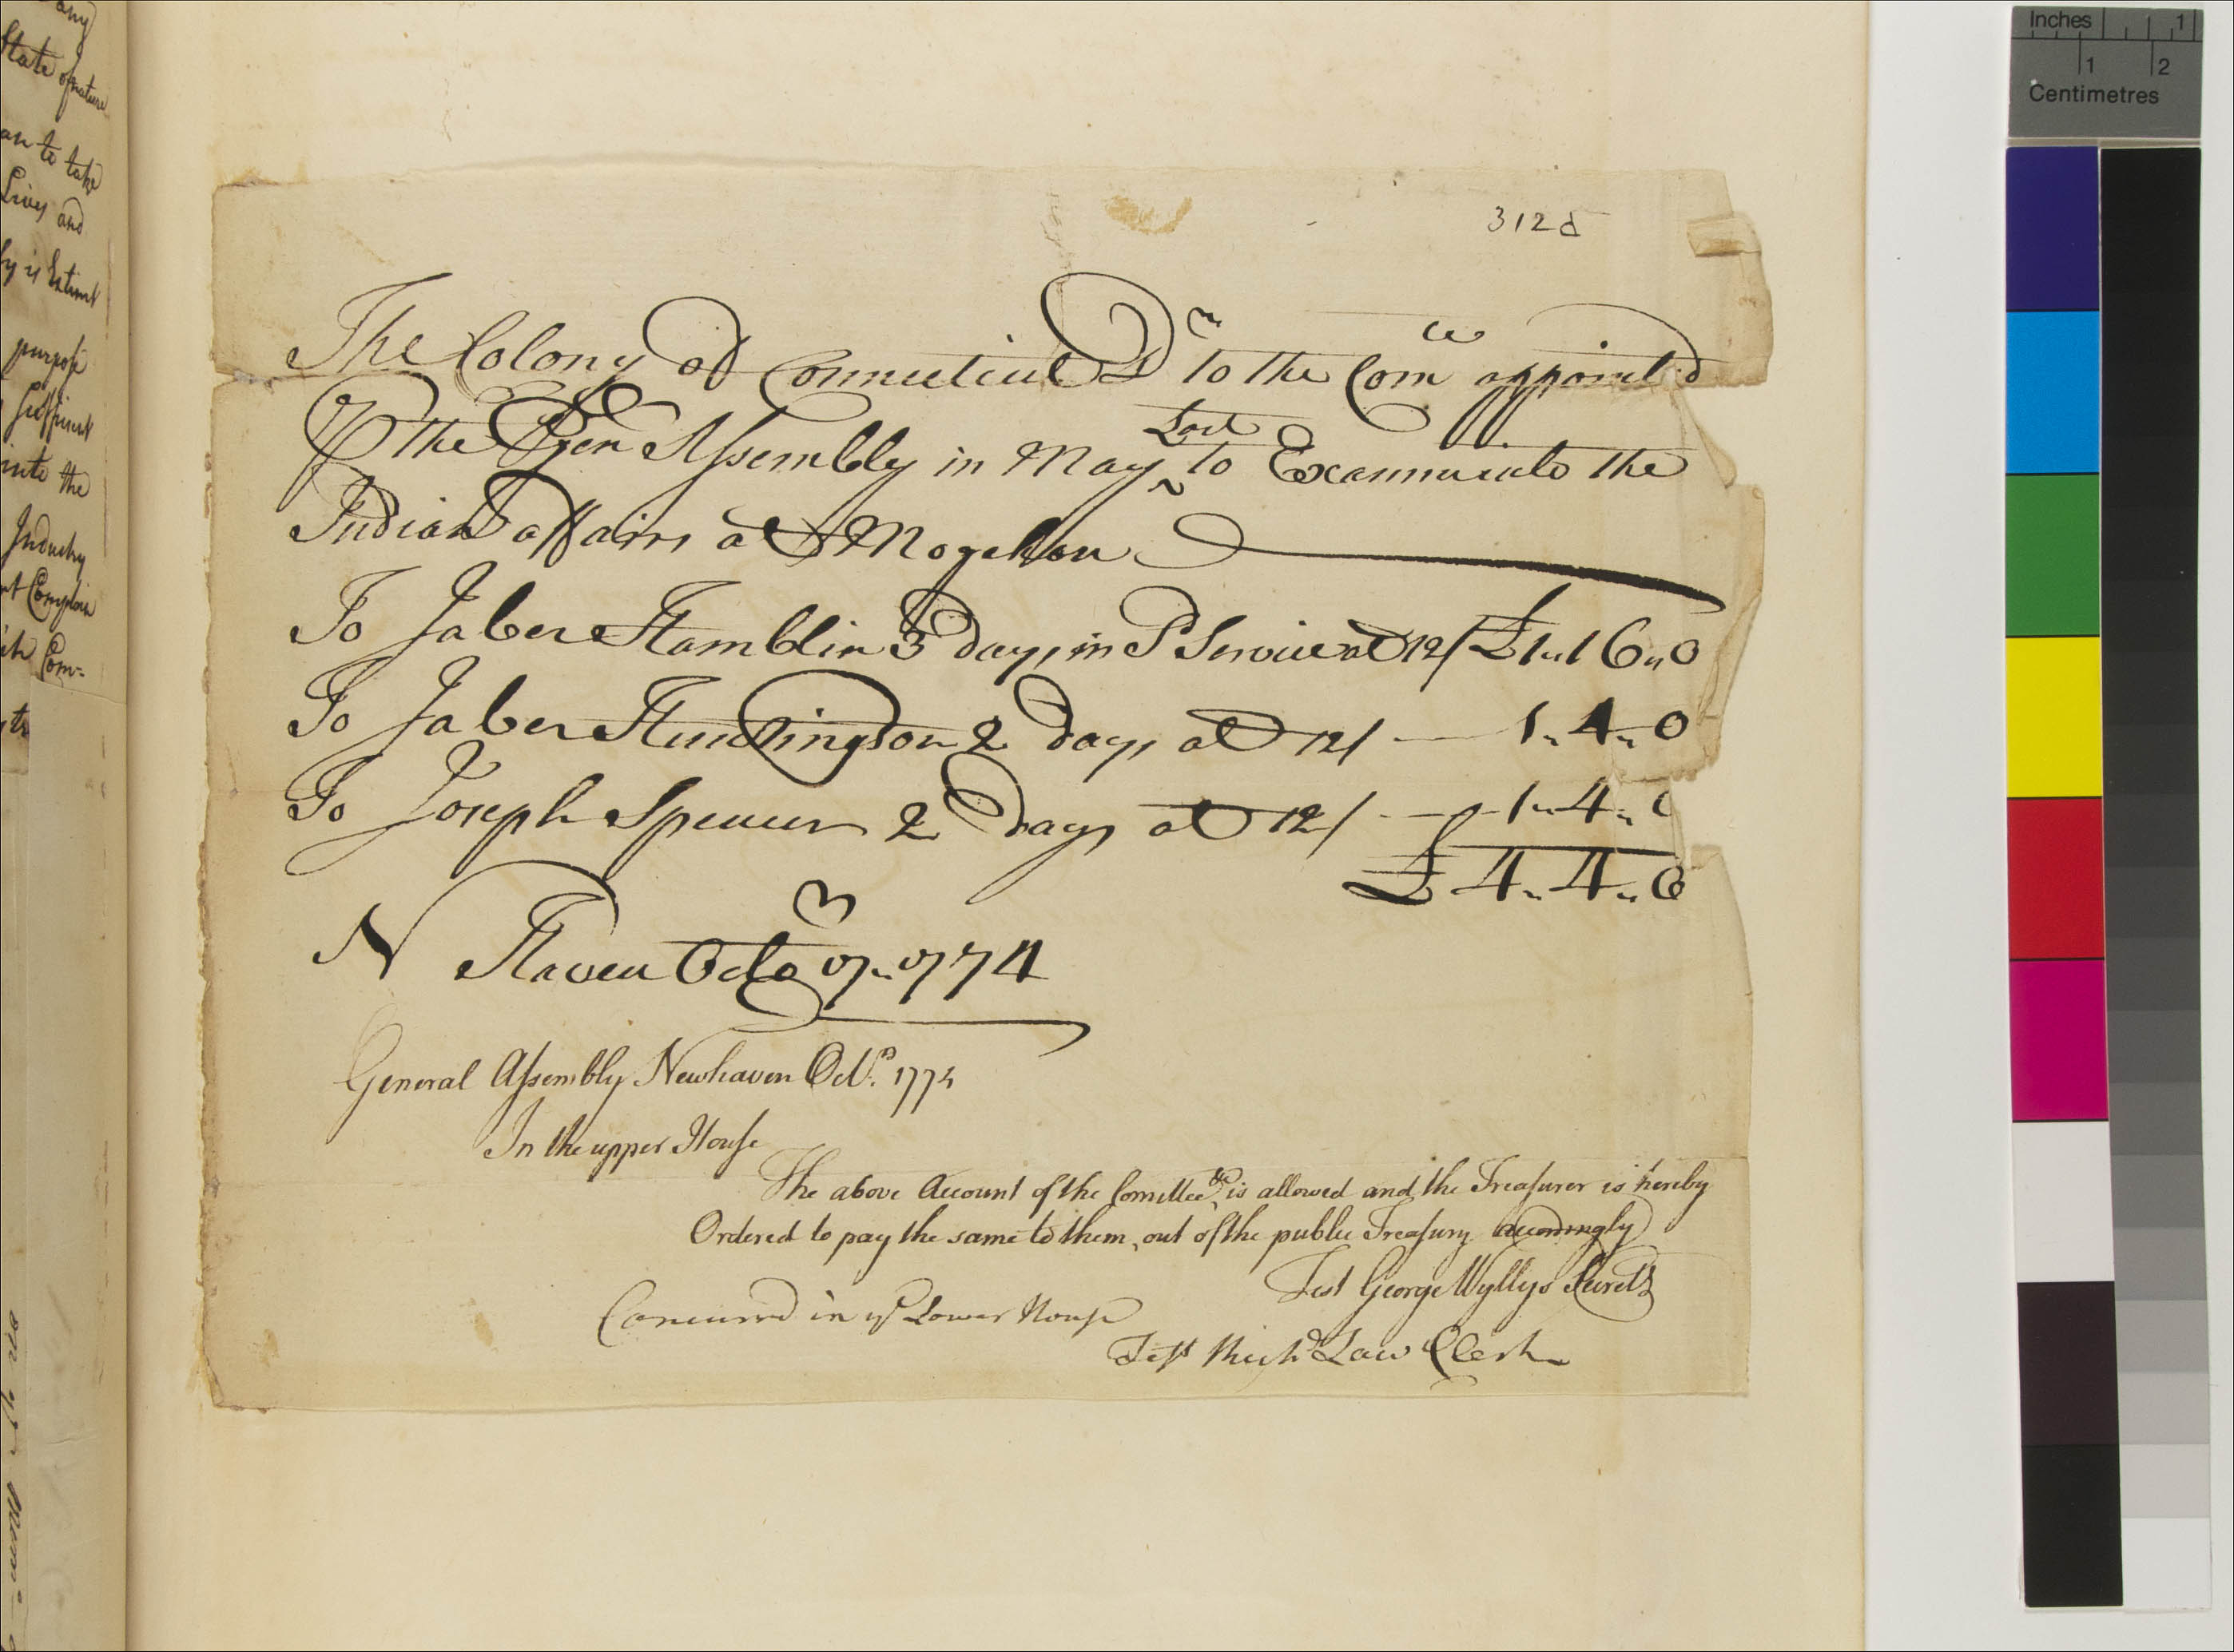 any
State of nature
an to take
Lives and
ly is Extinct
purpose
Sufficient
into the
Industry
nt Complain
Com-
312d
The Colony of Connecticut Dr to the Comtee appointed
P the Gen Assembly in May Last to Examin into the
Indian affairs at Mogehon
To Jabez Hamblin 3 days in Sd Service at 12/ £1"16"0
To Jabez Huntington 2 days at 12/ — 1"4"0
To Joseph Spencer 2 days at 12/ — 1"4"0
£4"4"0
N Haven Octo 17 1774
General Assembly Newhaven Octr. 1774
In the upper House
The above Account of the Comittee is allowed and the Treasurer is hereby
Ordered to pay the same to them, out of the public Treasury accordingly
Test George Wyllys Secrety
Concurrd in ye Lower House
Test Richd Law Clerk
Inches 1
1 2
Centimetres